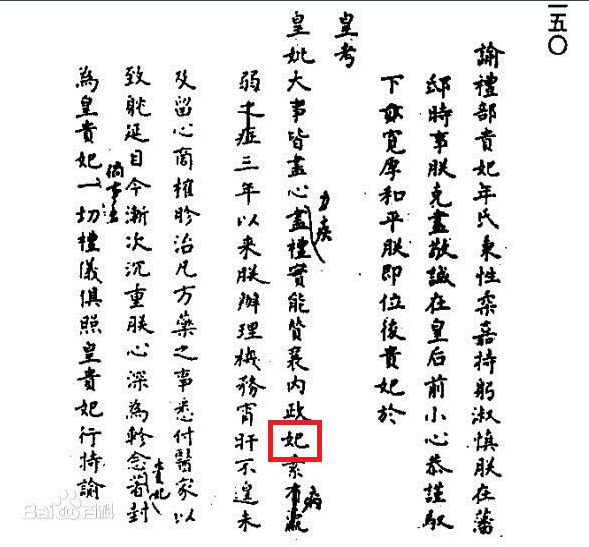 一五〇
諭禮部貴妃年氏秉性柔嘉持躬淑慎朕在藩
邸時事朕克盡敬誠在皇后前小心恭謹馭
下亦寬厚和平朕即位後貴妃於
皇考
皇妣大事皆盡心盡禮實能贊襄內政妃素有羸
力疾
病
弱之症三年以來朕辦理機務宵旰不遑未
及留心商榷診治凡方藥之事悉付醫家以
致躭延目今漸次沉重朕心深為軫念著封
貴妃
為皇貴妃一切禮儀俱照皇貴妃行特諭
倘事出
Bai百科